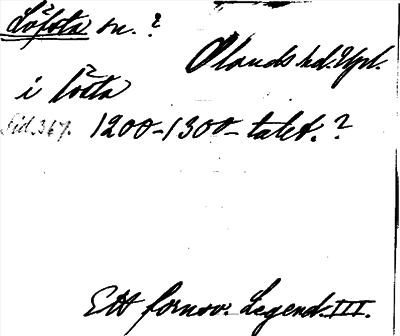 Löfsta sn.?
Olands hd. Upl.
i lösta
Sid. 367. 1200-1300-talet.?
Ett fornsv. Legend. III.